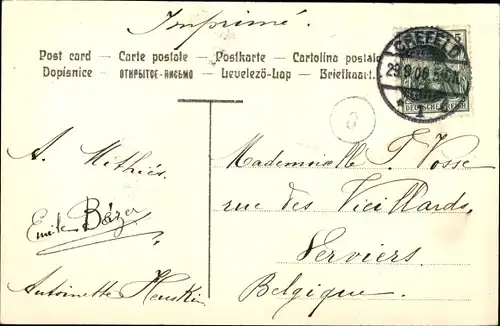 Imprimé.
Post card — Carte postale — Postkarte — Cartolina postale
Dopisnice — ОТКРЫТОЕ-ПИСЬМО — Levelező-Lap — Briefkaart.
5
CREFELD
29.9.06
* 1
DEUTSCHES REICH
A. Mithiés.
Emile Bézer
Antoinette
Mademoiselle F. Vosse
rue des Vieillards,
Verviers.
Belgique.